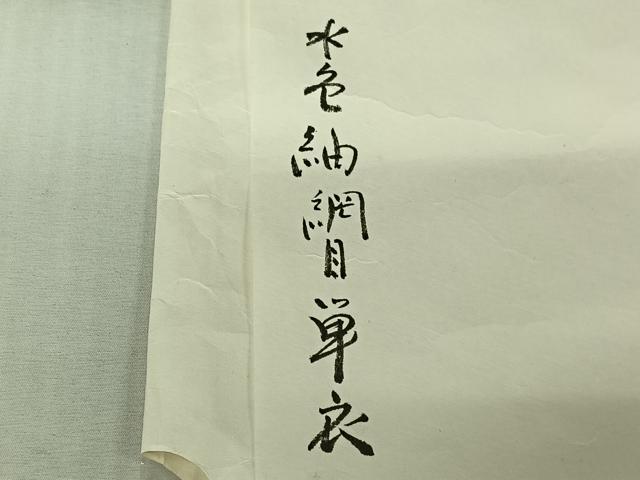 水色紬網目単衣